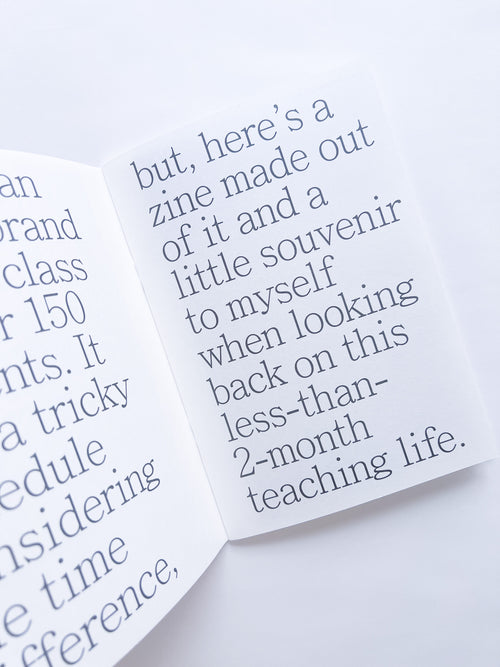 an
brand
class
r 150
nts. It
a tricky
edule
nsidering
e time
fference,
but, here's a
zine made out
of it and a
little souvenir
to myself
when looking
back on this
less-than-
2-month
teaching life.